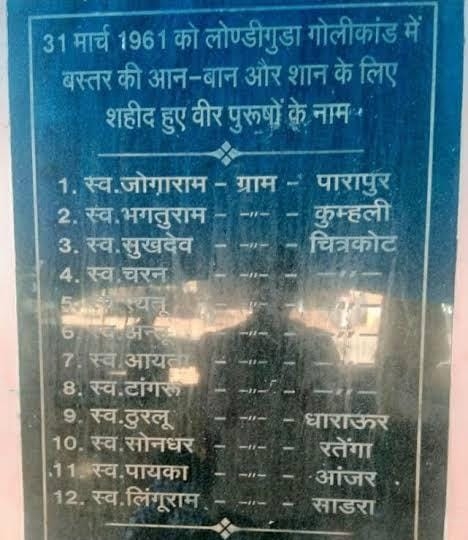 31 मार्च 1961 को लोण्डीगुडा गोलीकांड में
बस्तर की आन-बान और शान के लिए
शहीद हुए वीर पुरूषों के नाम
1. स्व.जोगाराम - ग्राम - पारापुर
2. स्व.भगतुराम - -"- - कुम्हली
3. स्व.सुखदेव - -"- - चित्रकोट
4. स्व.चरन - -"- - -"-
5. - -"- - -"-
6. स्व. - -"- - -"-
7. स्व.आयता - -"- - -"-
8. स्व.टांगरू - -"- - -"-
9. स्व.ठुरलू - -"- - धाराऊर
10. स्व.सोनधर - -"- - रतेंगा
11. स्व.पायका - -"- - आंजर
12. स्व.लिंगूराम - -"- - साडरा